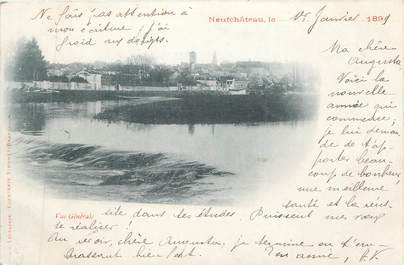 Ne fais pas attention à
mon écriture, j'ai
froid aux doigts
Neufchâteau, le 1er Janvier 1899
Ma chère
Augusta,
Voici la
nouvelle
année qui
commence,
je lui deman
de de t'ap
porter beau
coup de bonheur,
une meilleure
santé et la réus
Vue Générale
site dans tes études. Puissent mes vœux
se réaliser!
Au revoir, chère Augusta, je termine en t'em
brassant bien fort. Ton amie,